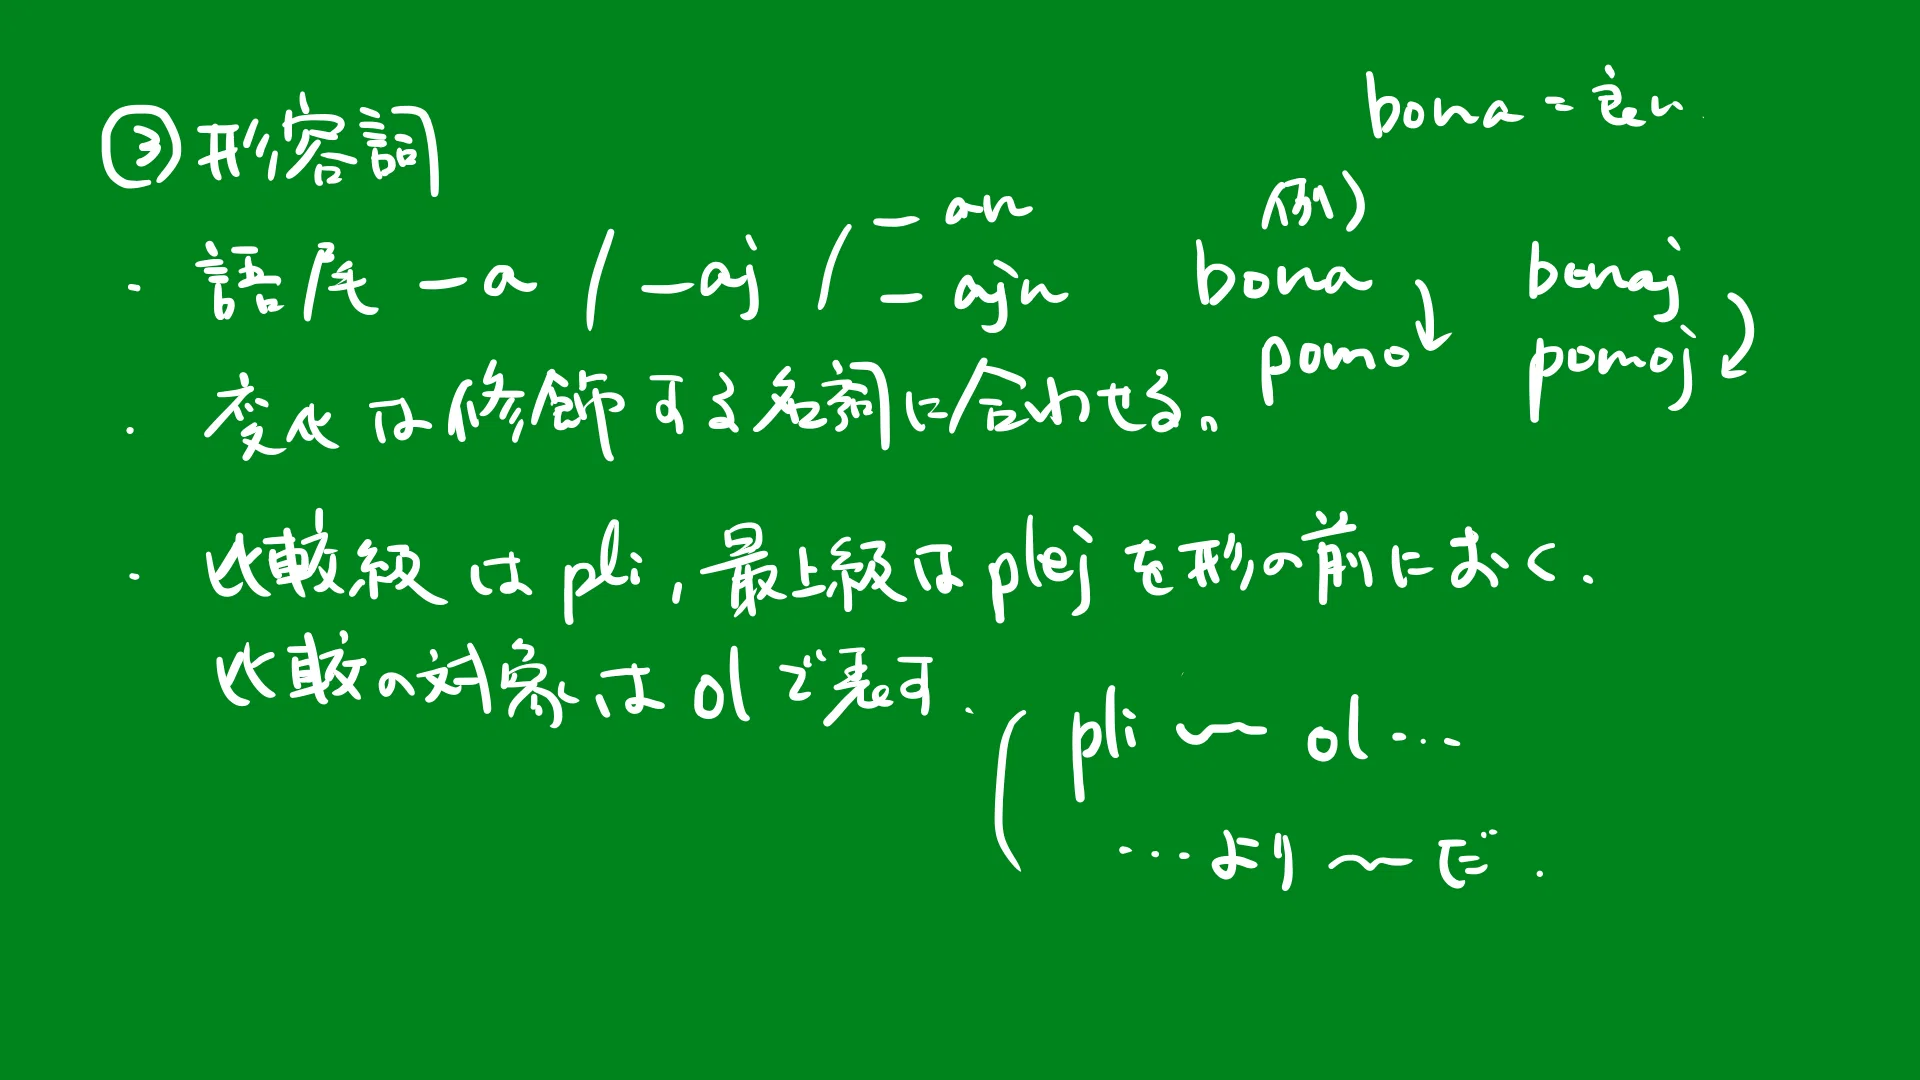 ③形容詞
・語尾 -a / -aj / -an -ajn
・変化は修飾する名詞に合わせる。
・比較級は pli, 最上級は plej を形の前におく.
比較の対象は ol で表す.
( pli 〜 ol …
…より 〜 だ.
bona = 良い
例)
bona bonaj
pomo pomoj